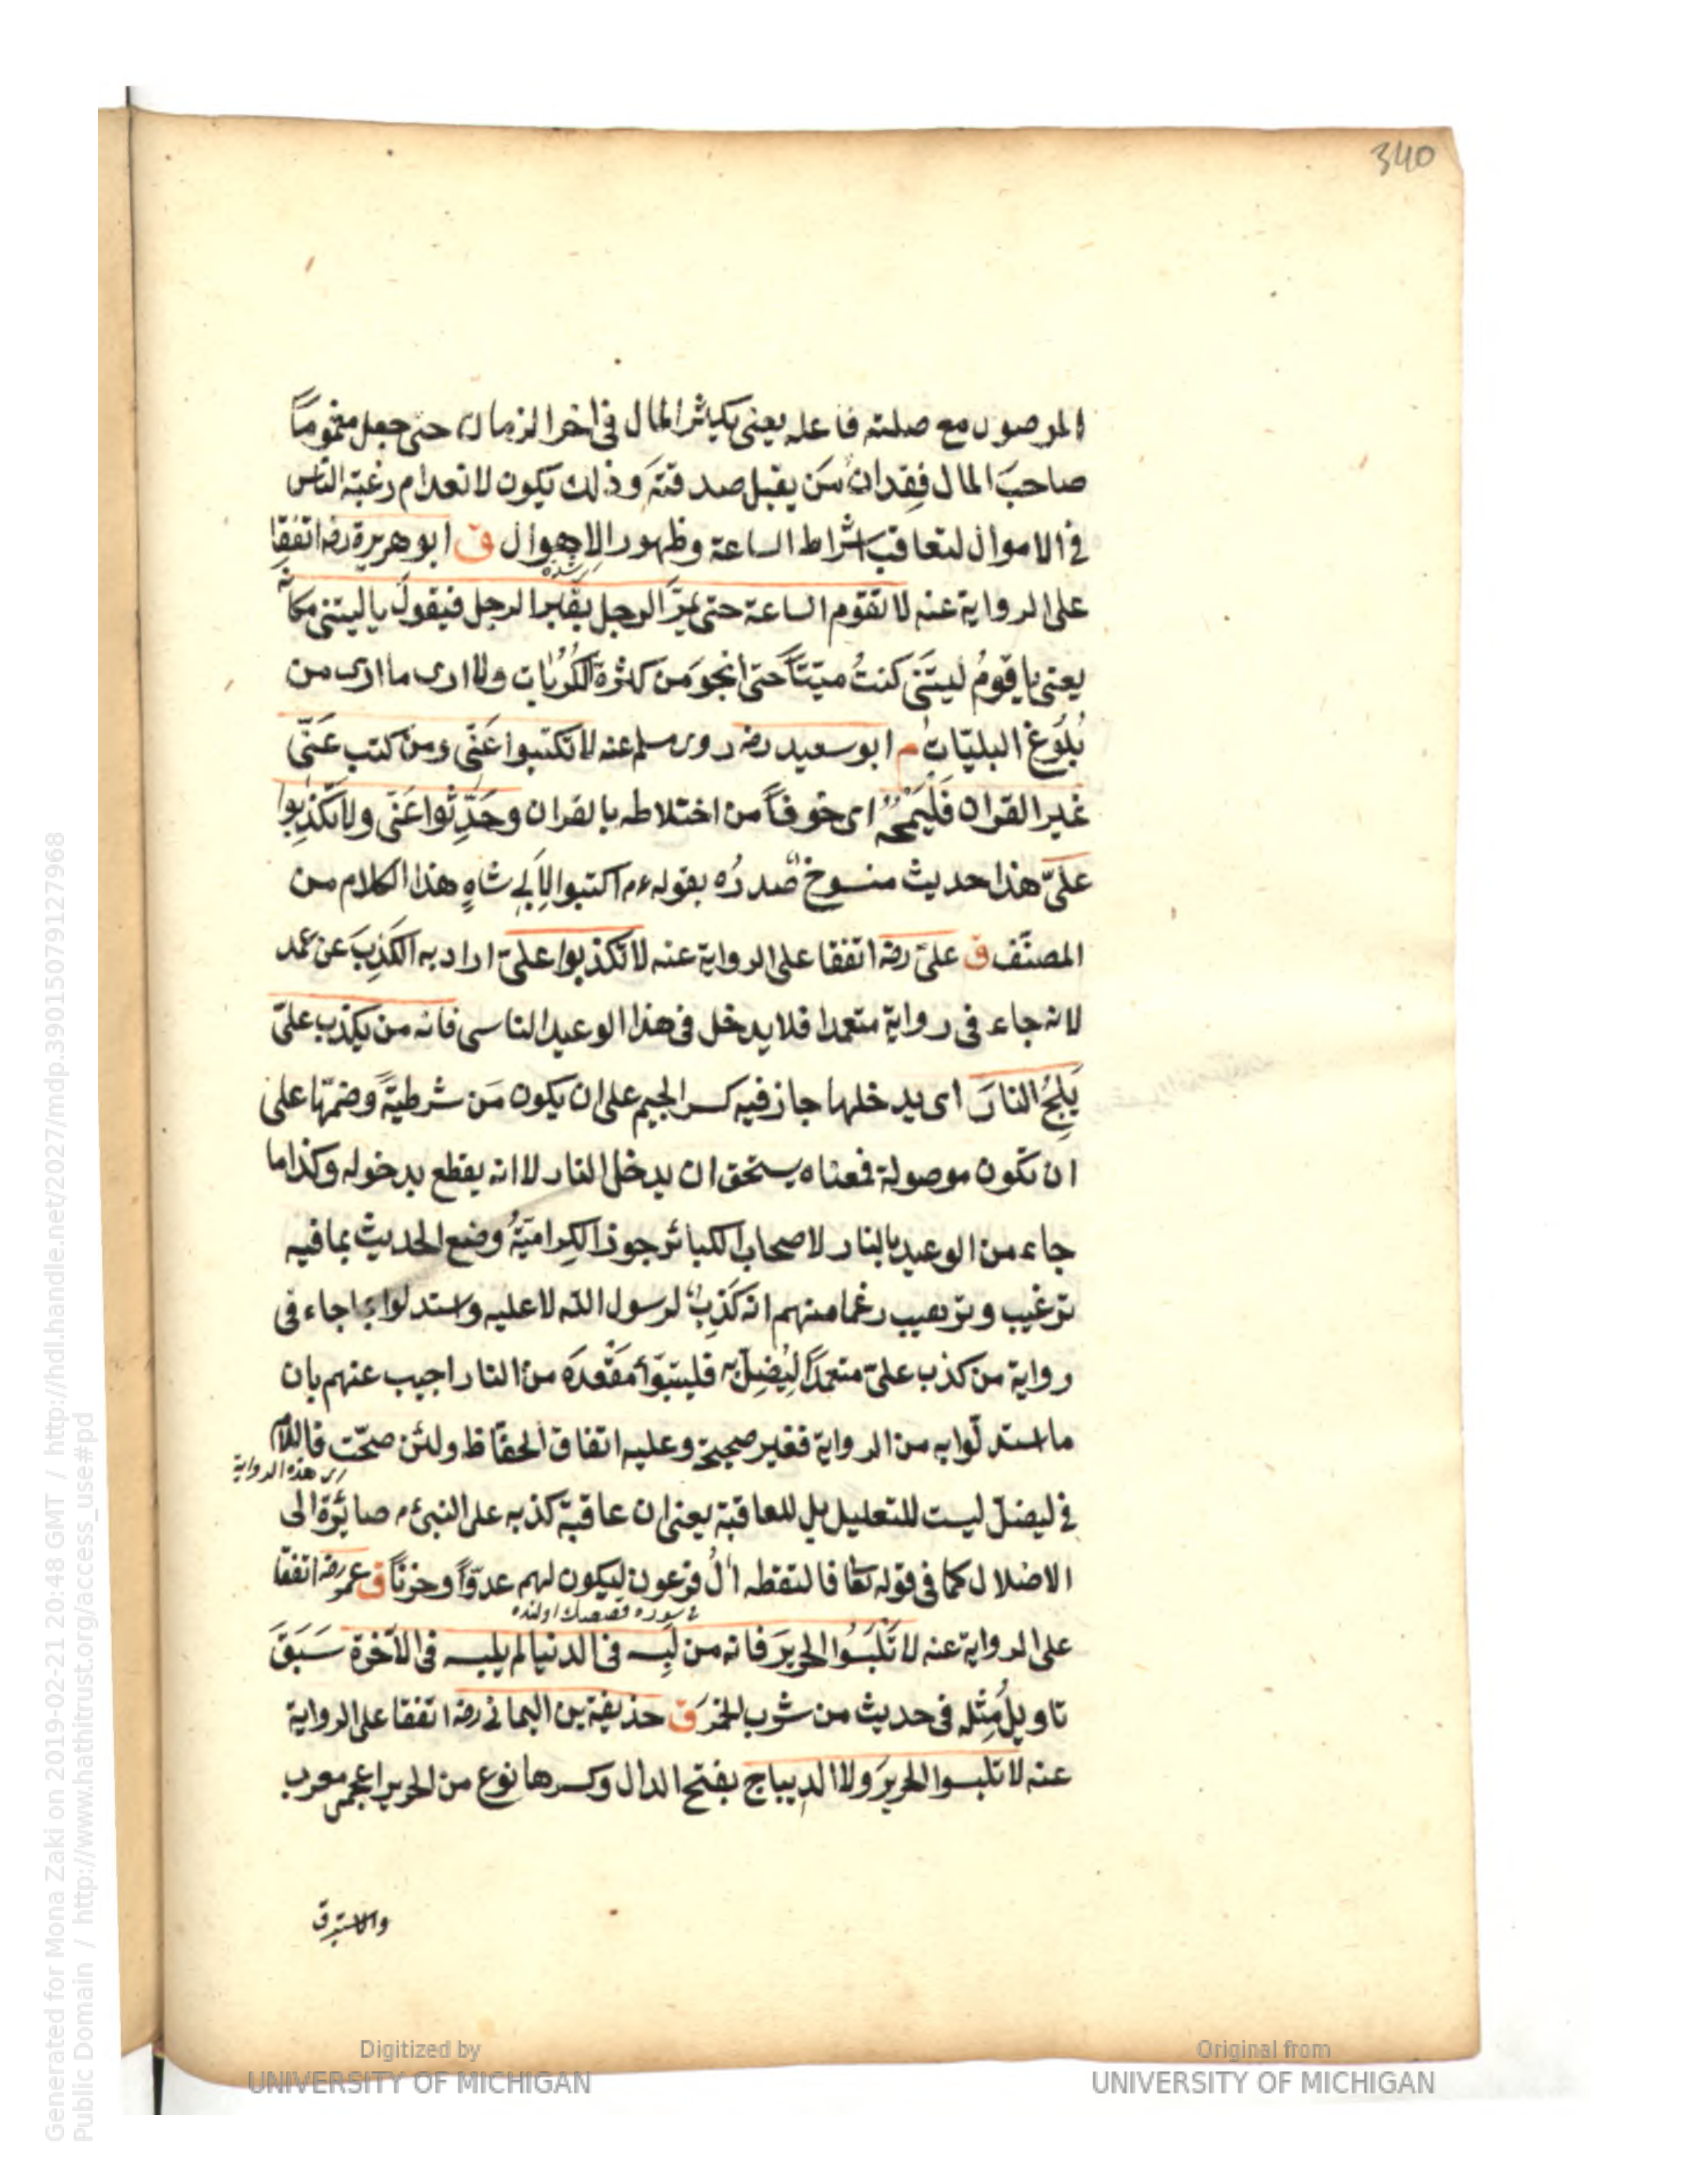 340
الموصول مع صلته فاعله يعنى يكاثر المال فى اخر الزمان حتى جعل مغموماً
صاحبَ المال فِقدان مَن يقبل صدقتَه وذلك يكون لانعدام رغبة الناس
فى الاموال لتعاقب اشراط الساعة وظهور الاهوال ق ابو هريرة رضه اتفقا
على الرواية عنه لا تقوم الساعة حتى يمرّ الرجل بقبر الرجل فيقول يا ليتنى مكانه
يعنى يا قومُ ليتَنى كنتُ ميّتاً حتى انجوَ من كثرة الكُرُبات ولا ارى ما ارى من
بُلوغ البليّات م ابو سعيد رضه روى مسلم عنه لا تكتبوا عَنّى ومن كتب عَنّى
غير القران فَليَمحُه اى خوفاً من اختلاطه بالقران وحَدِّثوا عَنّى ولا تكذِبوا
علىّ هذا حديث منسوخ صدرُه بقوله ءم اكتبوا لِاَبى شاهٍ هذا الكلام من
المصنّف ق علىّ رضه اتفقا على الرواية عنه لا تكذبوا علىّ اراد به الكَذِبَ عن عمد
لانه جاء فى رواية متعمدا فلا يدخل فى هذا الوعيد الناسى فانه من يكذب علىّ
يَلِجُ النارَ اى يدخلها جاز فيه كسر الجيم على ان يكون مَن شرطيةً وضمّها على
ان تكون موصولة فمعناه يستحق ان يدخل النار لا انه يقطع بدخوله وكذا ما
جاء من الوعيد بالنار لاصحاب الكبائر جوز الكراميّةُ وضع الحديث بما فيه
ترغيب وترهيب رغما منهم انه كَذِب لرسول الله لا عليه واستدلوا بما جاء فى
رواية من كذب علىّ متعمداً ليُضِلّ به فليتبوّأ مَقْعدَه من النار اجيب عنهم بان
ما استدلّوا به من الرواية فغير صحيح وعليه اتفاق الحفّاظ ولئن صحّت فاللام
اى هذه الرواية
فى ليضلّ ليست للتعليل بل للعاقبة يعنى ان عاقبة كذبه على النبىءم صائرة الى
الاضلال كما فى قوله تعا فالتقطه الُ فرعون ليكون لهم عدوّاً وحزناً ق عمر رضه اتفقا
على الرواية عنه لا تَلْبَسُوا الحريرَ فانه من لَبِسه فى الدنيا لم يلبسه فى الآخرة سَبَقَ
تاويلُ مِثله فى حديث من شرب الخمرَ ق حذيفة بن اليمانى رضه اتفقا على الرواية
عنه لا تلبسوا الحريرَ ولا الديباج بفتح الدال وكسرها نوع من الحرير اعجمى معرب
والاستبرق
Generated for Mona Zaki on 2019-02-21 20:48 GMT / http://hdl.handle.net/2027/mdp.39015079127968
Public Domain / http://www.hathitrust.org/access_use#pd
Digitized by
UNIVERSITY OF MICHIGAN
Original from
UNIVERSITY OF MICHIGAN